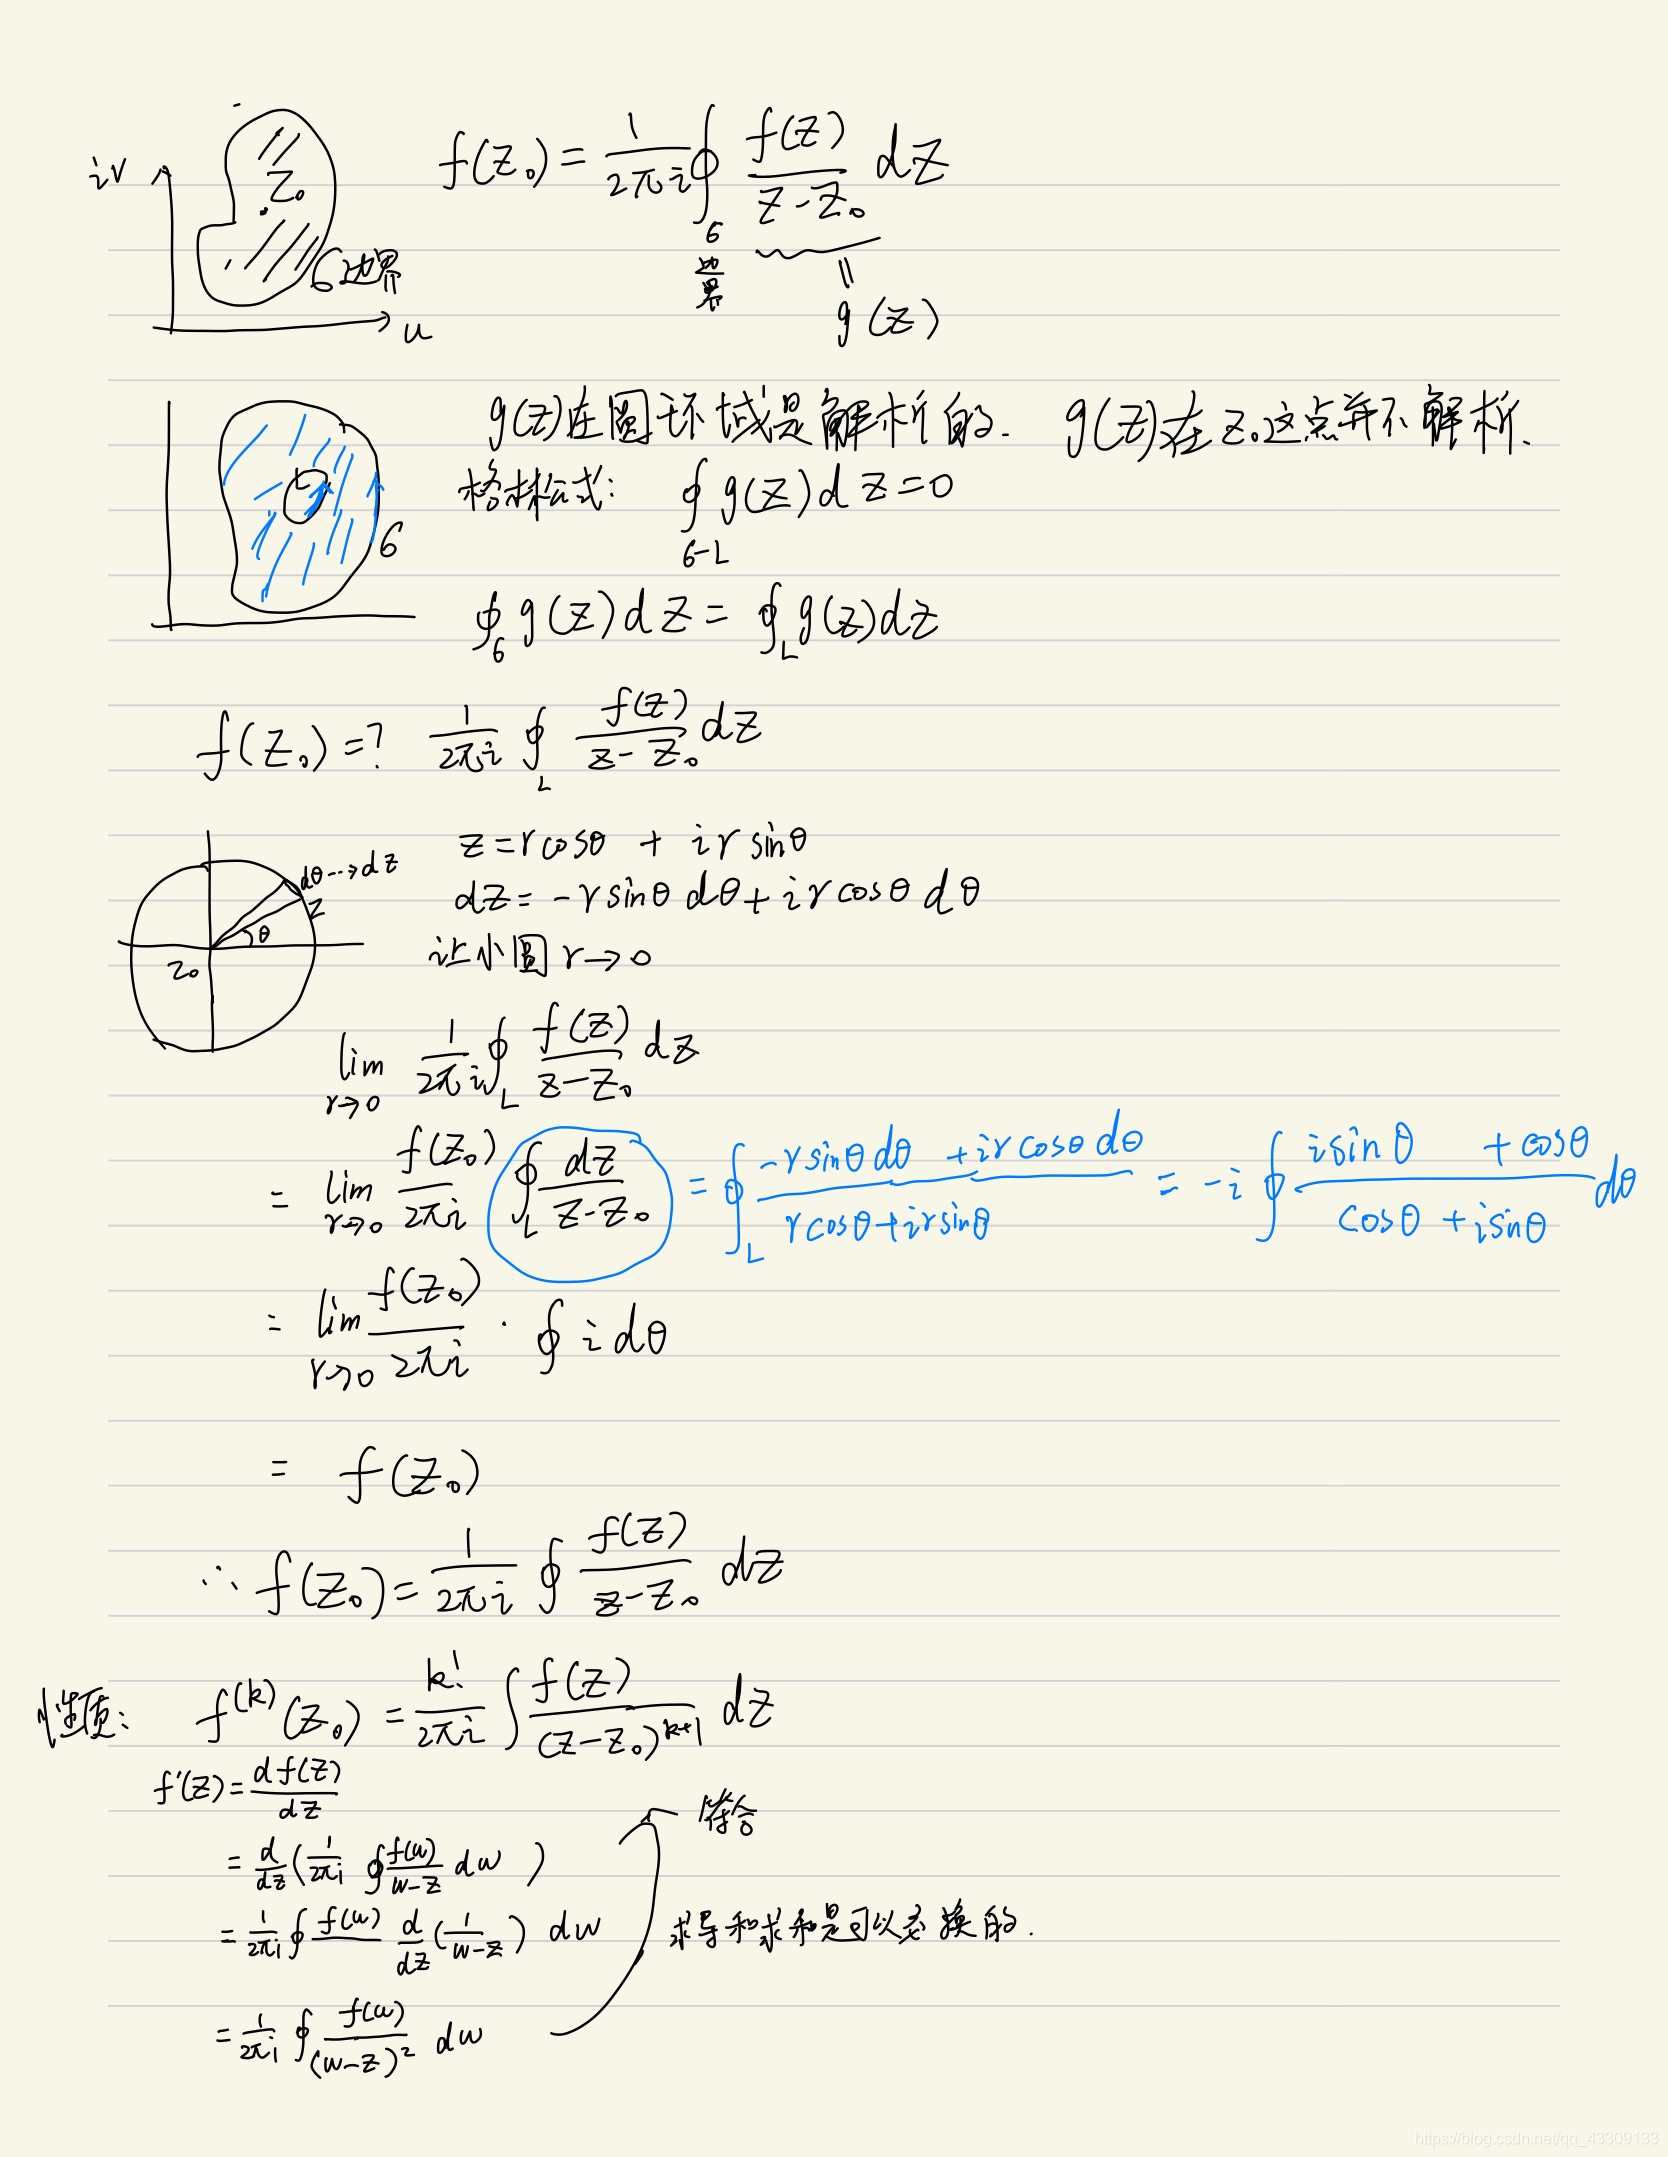 iv
Z₀
6边界
u
f(Z₀) = 1/(2πi) ∮_6边界 f(Z)/(Z-Z₀) dZ
=
g(Z)
g(Z)在圆环域是解析的. g(Z)在Z₀这点并不解析.
6
格林公式: ∮_{6-L} g(Z)dZ=0
∮_6 g(Z)dZ = ∮_L g(Z)dZ
f(Z₀)=? 1/(2πi) ∮_L f(Z)/(Z-Z₀) dZ
Z=rcosθ + irsinθ
dθ⇢dZ
Z
θ
Z₀
dZ= -rsinθdθ+ircosθdθ
让小圆r→0
lim_{r→0} 1/(2πi) ∮_L f(Z)/(Z-Z₀) dZ
= lim_{r→0} f(Z₀)/(2πi) ∮_L dZ/(Z-Z₀) = ∮_L (-rsinθdθ +ircosθdθ)/(rcosθ+irsinθ) = -i ∮ (isinθ +cosθ)/(cosθ+isinθ) dθ
= lim_{r→0} f(Z₀)/(2πi) · ∮ idθ
= f(Z₀)
∴ f(Z₀)= 1/(2πi) ∮ f(Z)/(Z-Z₀) dZ
性质: f^(k)(Z₀) = k!/(2πi) ∫ f(Z)/(Z-Z₀)^{k+1} dZ
f'(Z)= df(Z)/dZ
符合
= d/dz (1/(2πi) ∮ f(w)/(w-z) dw )
= 1/(2πi) ∮ f(w) d/dz (1/(w-z)) dw 求导和求和是可以交换的.
= 1/(2πi) ∮ f(w)/(w-z)² dw
https://blog.csdn.net/qq_43309133